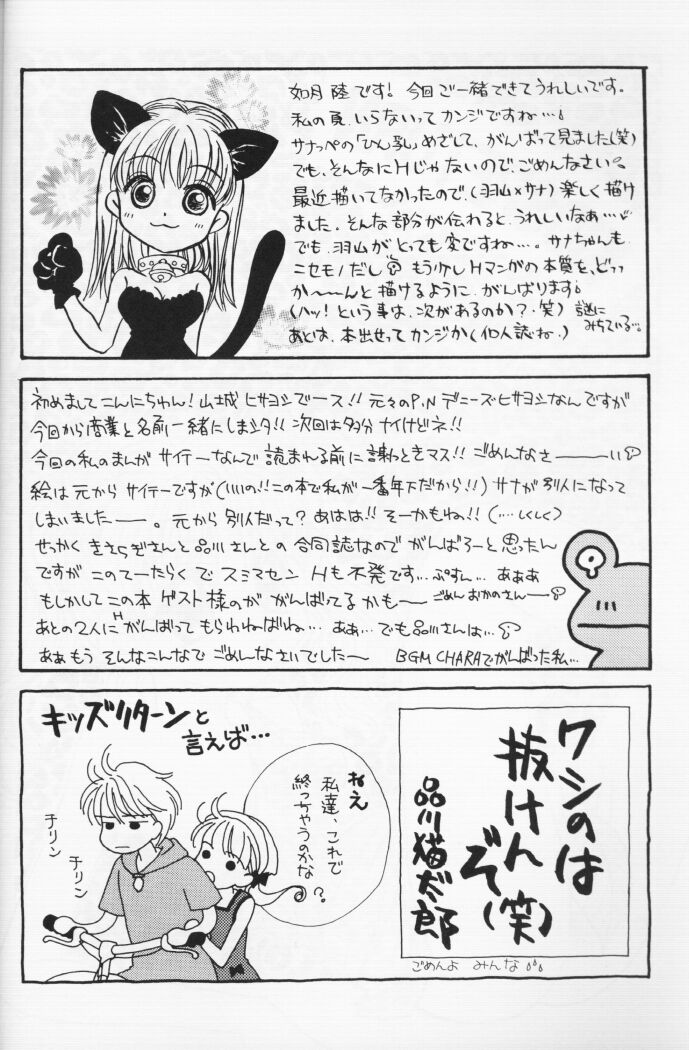 如月 陸です! 今回ご一緒できてうれしいです。
私の頁、いらないってカンジですね…
サナッペの「ひん乳」めざして、がんばって見ました(笑)
でも、そんなにHじゃないので、ごめんなさい
最近描いてなかったので、(羽山×サナ)楽しく描け
ました。そんな部分が伝わると、うれしいなぁ…
でも、羽山がとっても変ですね…。サナちゃんも
ニセモノだし もう少しHマンガの本質を、どっっ
か〜〜〜んと描けるように、がんばります
(ハッ! という事は、次があるのか?・笑) 謎に
みちている…
あとは、本出せってカンジか(個人誌ね。)
初めましてこんにちゅん! 山城 ヒサヨシでース!! 元々のP.N デニーズ・ヒサヨシなんですが
今回から商業と名前一緒にしまシタ!! 次回は多分 ナイけどネ!!
今回の私のまんが サイテーなんで 読まれる前に 謝っときマス!! ごめんなさ―――い
絵は 元から サイテーですが(いいの!! この本で私が一番年下だから!!) サナが 別人になって
しまいました――。元から 別人だって? あはは!! そーかもね!! (…しくしく)
せっかく きさらぎさんと 品川さんとの 合同誌なので がんばろーと思たん
ですが このてーたらく で スミマセン Hも 不発です… ぷすん… あぁぁ
もしかして この本 ゲスト様のが がんばってるかも― ごめんおかのさん―
あとの2人に H がんばって もらわねばね… ああ… でも品川さんは…
ああもう そんなこんなで ごめんなさいでした〜 BGM CHARAでがんばった私…
キッズリターンと
言えば…
ねえ
私達、これで
終っちゃうのかな
?
チリン
チリン
ワシのは
抜けん
ぞ(笑)
品川猫太郎
ごめんよ みんな